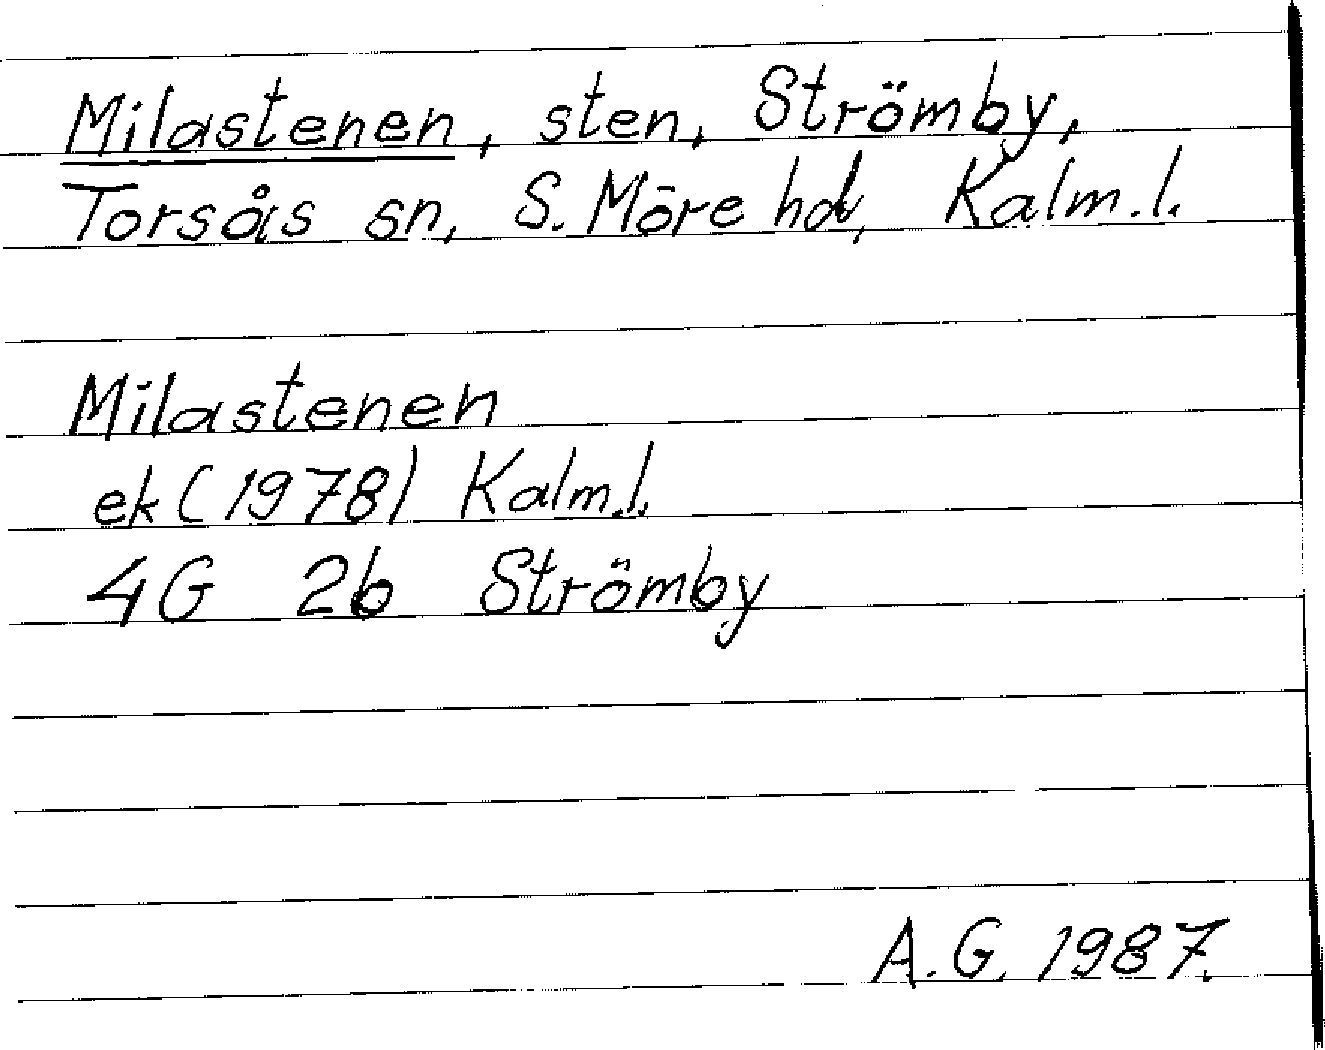 Milastenen, sten, Strömby,
Torsås sn, S. Möre hd, Kalm.l.
Milastenen
ek (1978) Kalm.l.
4G 2b Strömby
A.G. 1987.